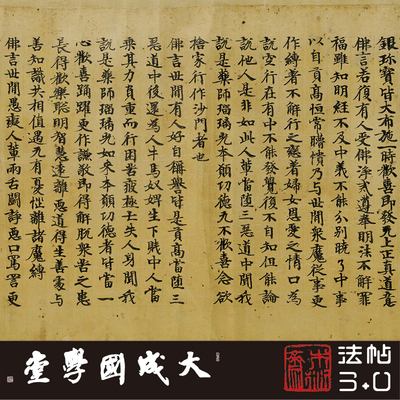 銀珍寶皆大布施一時歡喜即發无上正真道意
佛言若復有人受佛淨戒遵奉明法不解罪
福雖知明經不及中義不能分別曉了中事
以自貢高恒常瞋憒乃与世間眾魔從事更
作縛著不解行之戀著婦女恩愛之情口為
說空行在有中不能發覺復不自知但能論
說他人是非如此人輩當墮三惡道中聞我
說是藥師瑠璃光本願功德无不歡喜念欲
捨家行作沙門者也
佛言世間有人好自稱譽皆是貢高當墮三
惡道中後還為人牛馬奴婢生下賤中人當
乘其力負重而行困苦疲極亡失人身聞我
說是藥師瑠璃光如來本願功德者皆當一
心歡喜踊躍更作謙敬即得解脫眾苦之患
長得歡樂聰明智慧遠離惡道得生善處与
善知識共相值遇无有憂惱離諸魔縛
佛言世間愚癡人輩兩舌鬪諍惡口罵詈更
大成國學堂
法帖
3.0